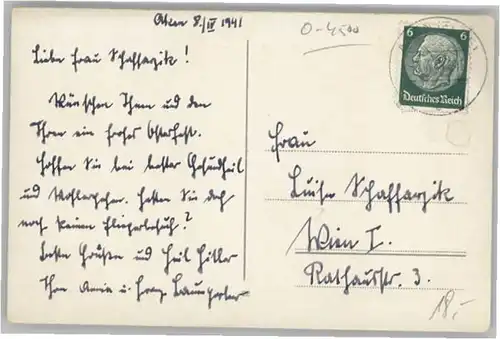 8./IV 1941
Liebe Frau Schaffarzik!
Wünschen Ihnen und den
Ihren ein frohes Osterfest.
Hoffen Sie bei bester Gesundheit
und Wohlergehen. Hatten Sie doch
noch keinen Fliegerbesuch?
Beste Grüßen und Heil Hitler
Ihre Anna u. Franz
0-4500
6 6
Deutsches Reich
Frau
Luise Schaffarzik
Wien I.
Rathausstr. 3.
18,-